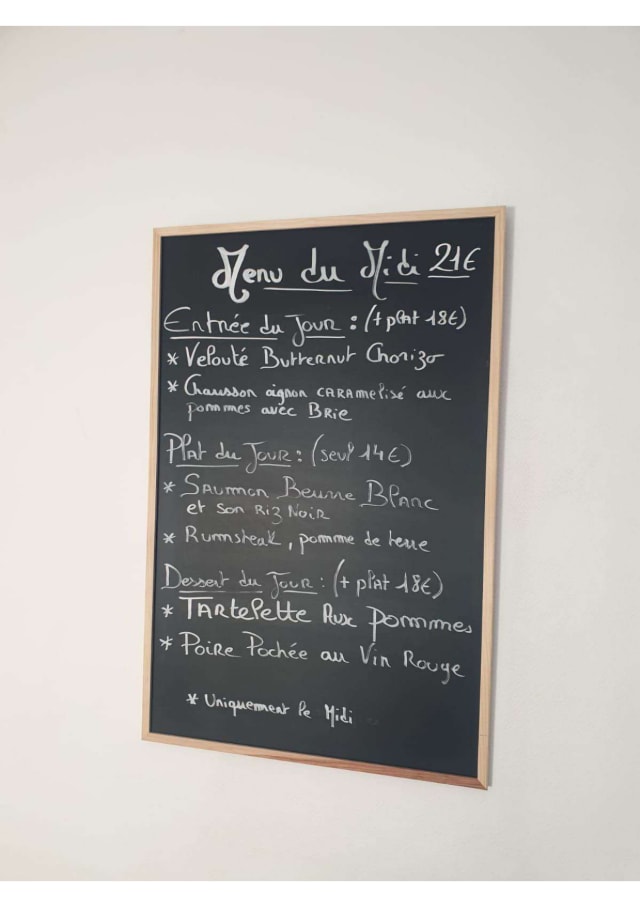 Menu du Midi 21€
Entrée du Jour : (+ plat 18€)
* Velouté Butternut Chorizo
* Chausson oignon caramelisé aux
pommes avec Brie
Plat du Jour : (seul 14€)
* Saumon Beurre Blanc
et son Riz Noir
* Rumsteak, pomme de terre
Dessert du Jour : (+ plat 18€)
* Tartelette Aux pommes
* Poire Pochée au Vin Rouge
* Uniquement le Midi